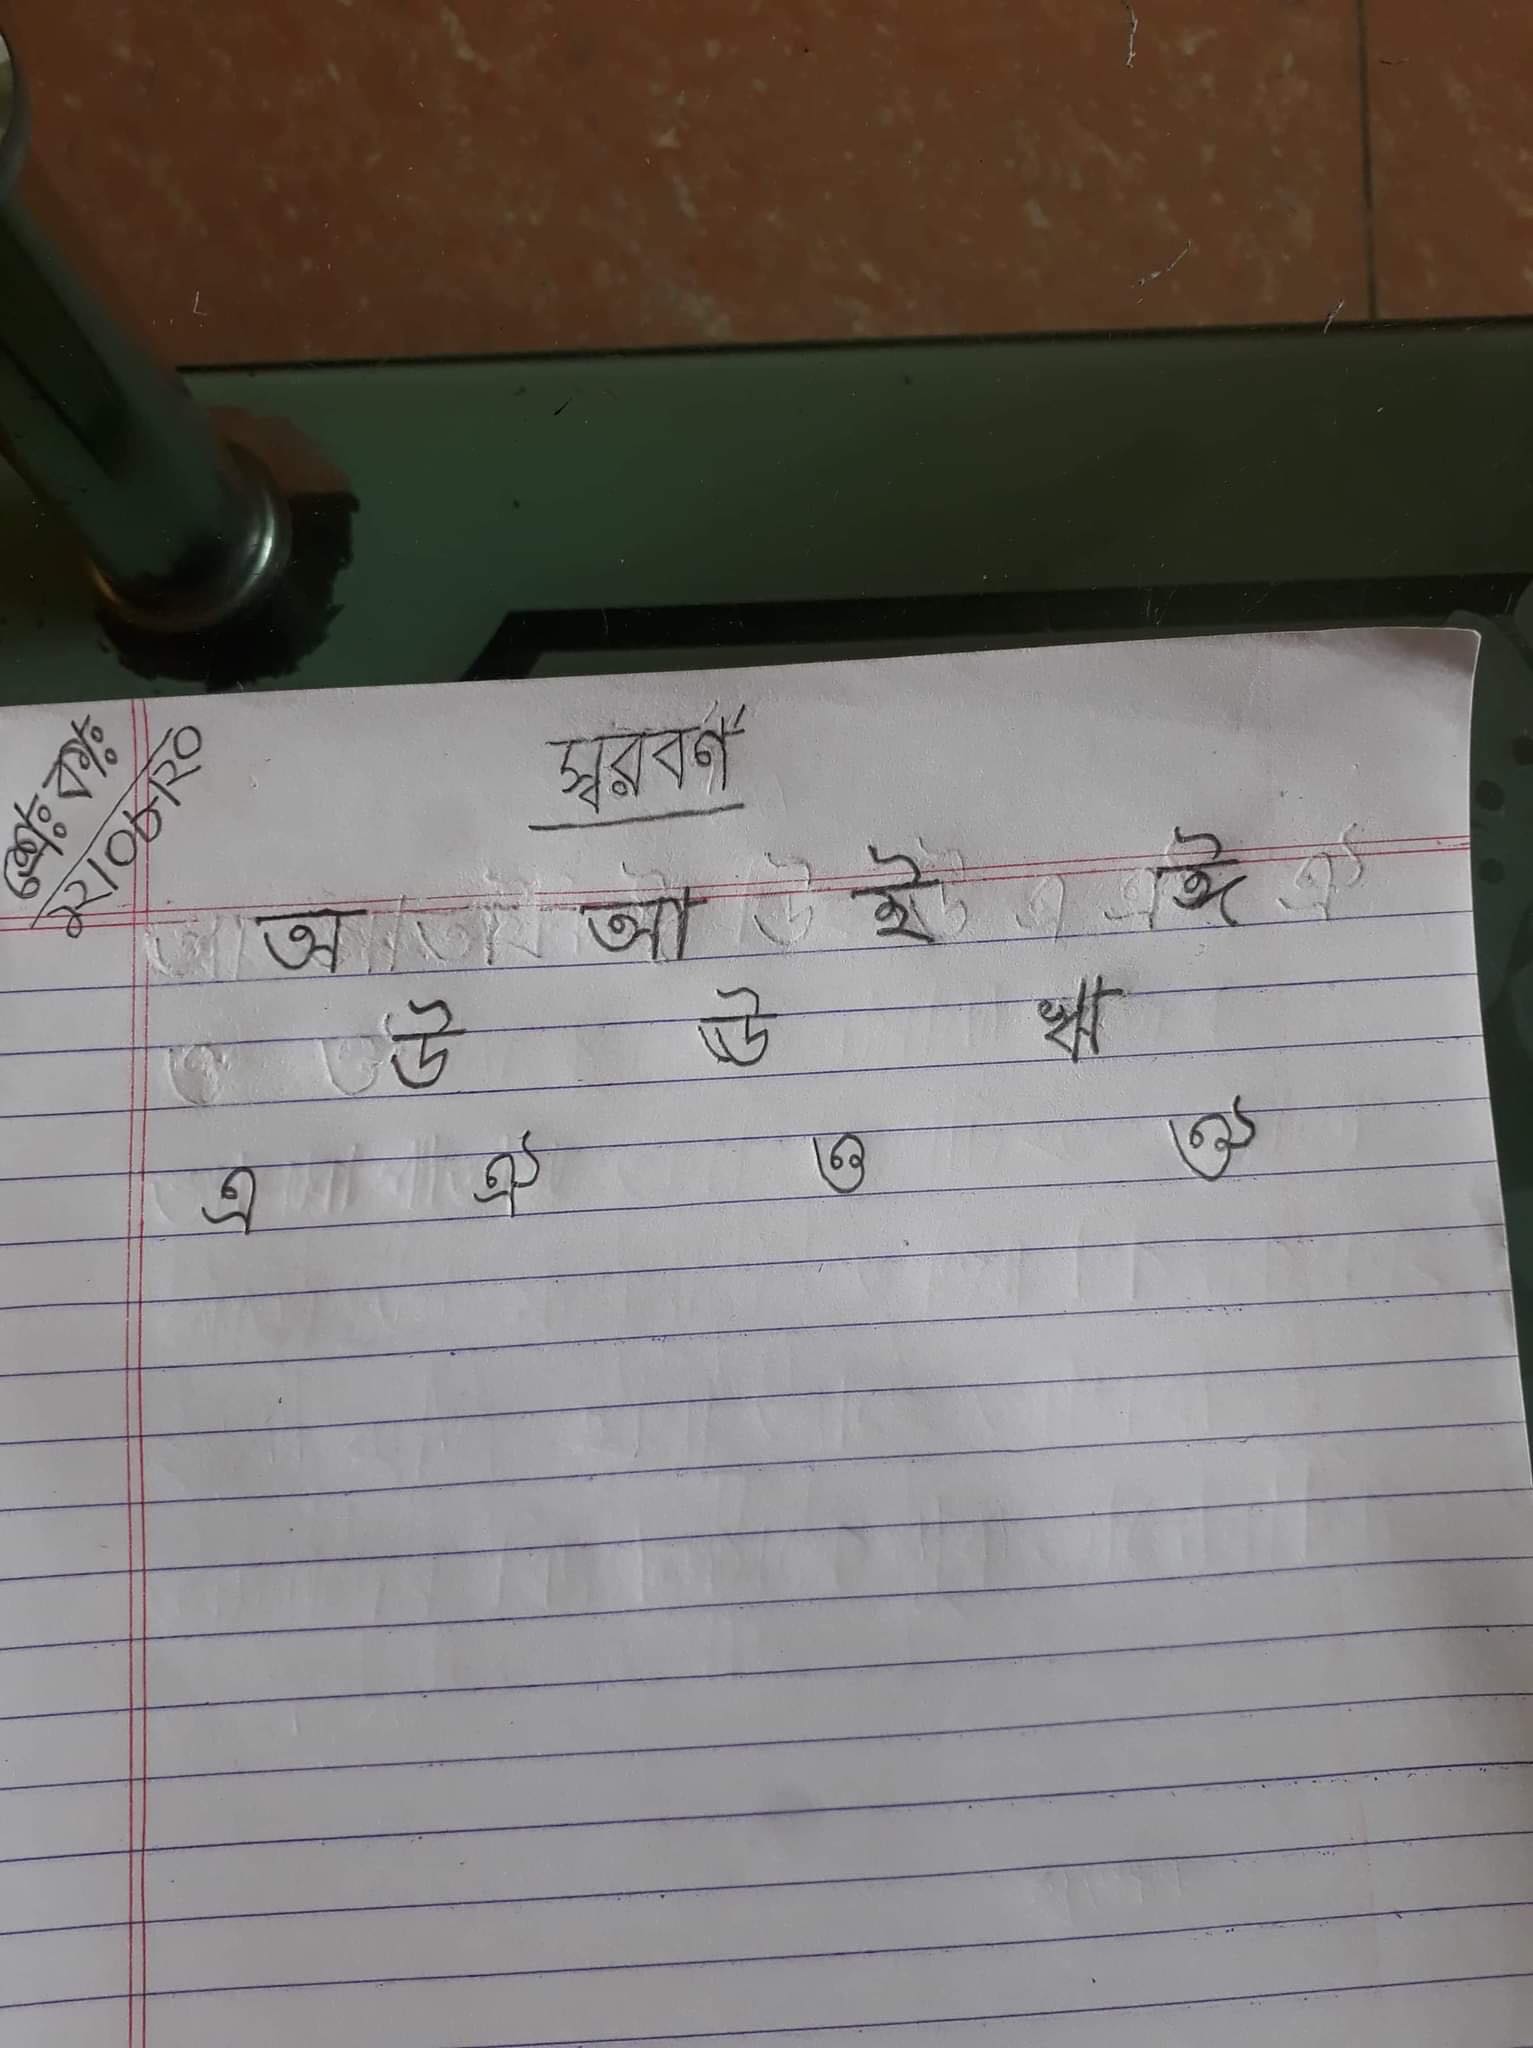 শ্রেঃ কাঃ
১২/০৮/২০
স্বরবর্ণ
অ আ ই ঈ
উ ঊ ঋ
এ ঐ ও ঔ